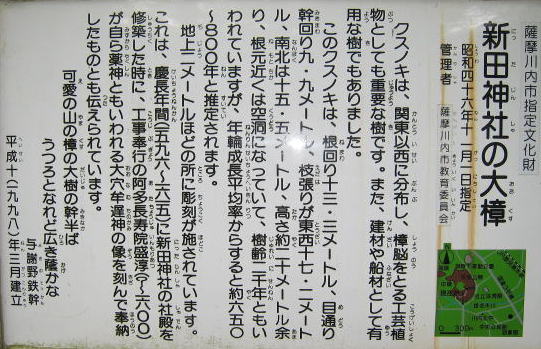 薩摩川内市指定文化財
新田神社の大樟
昭和四十六年十一月三日指定
管理者 薩摩川内市教育委員会
クスノキは、関東以西に分布し、樟脳をとる工芸植
物としても重要な樹です。また、建材や船材として有
用な樹でもありました。
このクスノキは、根回り十三・三メートル、目通り
幹回り九・九メートル、枝張りが東西十七・二メート
ル、南北は十五・五メートル、高さ約二十メートル余
り、根元近くは空洞になっていて、樹齢二千年ともい
われていますが、年輪成長平均率からすると約六五〇
～八〇〇年と推定されます。
地上二メートルほどの所に彫刻が施されています。
これは、慶長年間(一五九六～一六一五)に新田神社の社殿を
修築した時に、工事奉行の阿多長寿院盛淳(?～一六〇〇)
が自ら薬神ともいわれる大穴牟遅神の像を刻んで奉納
したものとも伝えられています。
可愛の山の樟の大樹の幹半ば
うつろとなれど広き蔭かな
与謝野鉄幹
平成十(一九九八)年三月建立
0 300m